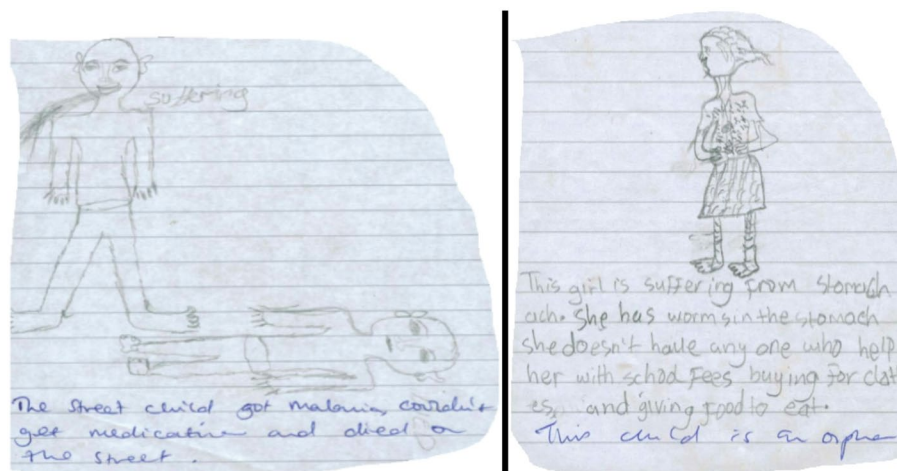 suffering
The street child got malaria, couldn't
get medication and died on
the street.
This girl is suffering from stomach
ach. She has worms in the stomach
she doesn't have any one who help
her with school fees buying for clot
es, and giving food to eat.
This child is an orphan